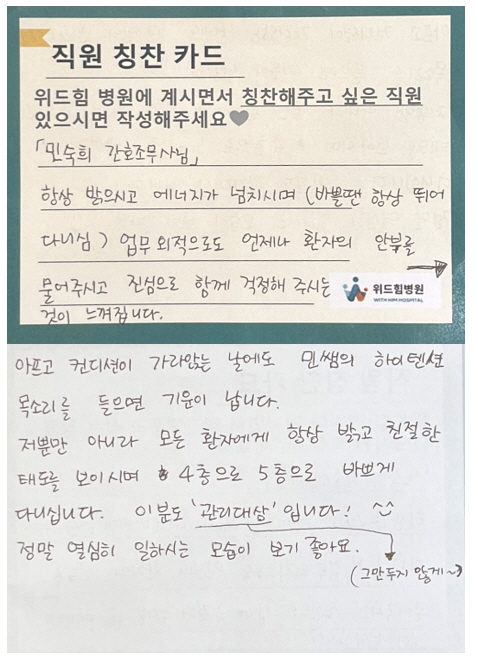 직원 칭찬 카드
위드힘 병원에 계시면서 칭찬해주고 싶은 직원
있으시면 작성해주세요🖤
「민숙희 간호조무사님」
항상 밝으시고 에너지가 넘치시며 (바쁠땐 항상 뛰어
다니심) 업무 외적으로도 언제나 환자의 안부를
물어주시고 진심으로 함께 걱정해 주시는
것이 느껴집니다.
위드힘병원
WITH HIM HOSPITAL
아프고 컨디션이 가라앉는 날에도 민쌤의 하이텐션
목소리를 들으면 기운이 납니다.
저뿐만 아니라 모든 환자에게 항상 밝고 친절한
태도를 보이시며 4층으로 5층으로 바쁘게
다니십니다. 이분도 '관리대상' 입니다!
정말 열심히 일하시는 모습이 보기 좋아요.
(그만두지 않게~)